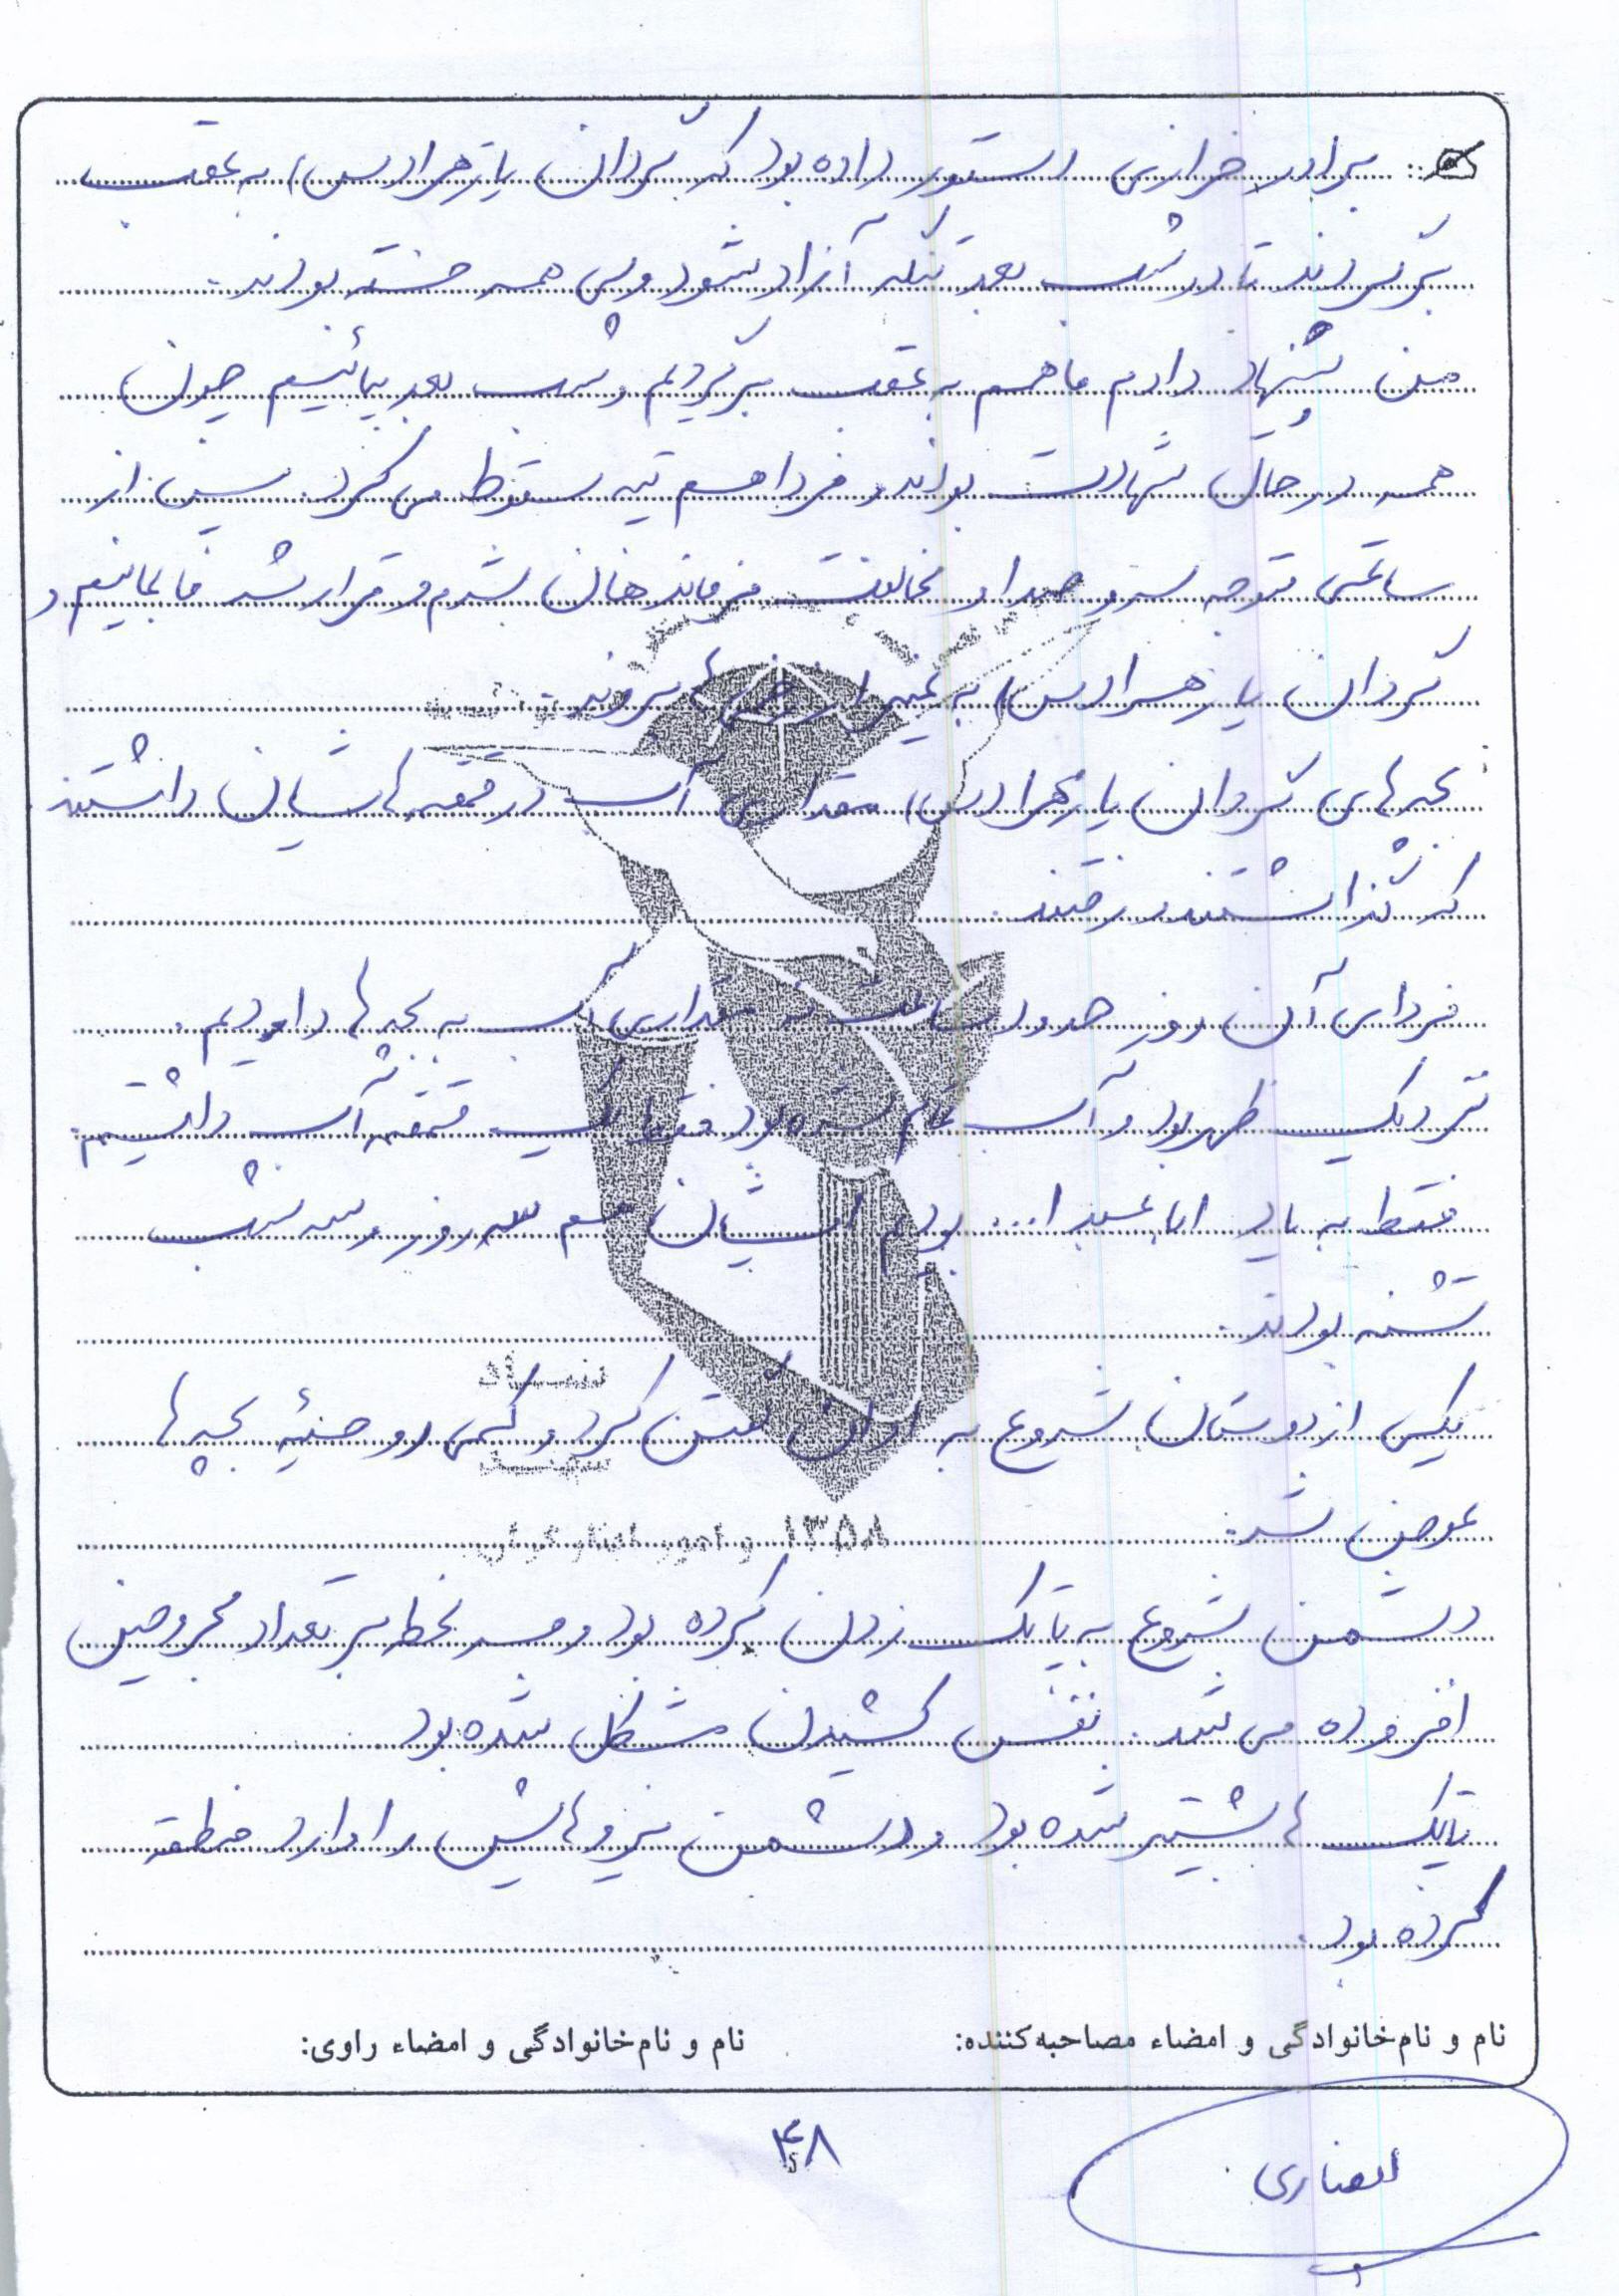 برادر خرازی دستور داده بود که گردان یا زهرا (س) به عقب
برگردند تا در شب بعد تنگه آزاد بشود ولی همه خسته بودند.
من پیشنهاد دادم ما هم به عقب برگردیم و شب بعد بیائیم چون
همه در حال شهادت بودند و فردا هم تپه سقوط می کرد. پس از
ساعتی متوجه سر و صدا و مخالفت فرماندهان شدم و قرار شد ما بمانیم و
گردان یا زهرا (س) به غیر از بروند.
بچه های گردان یا زهرا (س) مقداری آب در قمقمه هاشان داشتند
که گذاشتند و رفتند.
فردای آن روز حدود ساعت نه مقداری آب به بچه ها دادیم.
نزدیک ظهر بود و آب تمام شده بود فقط یک قمقمه آب داشتیم.
فقط به یاد ابا عبدا... بودیم ایشان هم سه روز و سه شب
تشنه بودند.
یکی از دوستان شروع به اذان گفتن کرد و کمی روحیه بچه ها
عوض شد.
دشمن شروع به پاتک زدن کرده بود و هر لحظه بر تعداد مجروحین
افزوده می شد. نفس کشیدن مشکل شده بود
تانک ها بیشتر شده بود و دشمن نیروهایش را وارد منطقه
کرده بود.
۱۳۵۸
نام و نام‌خانوادگی و امضاء مصاحبه‌کننده:
نام و نام‌خانوادگی و امضاء راوی:
۴۸